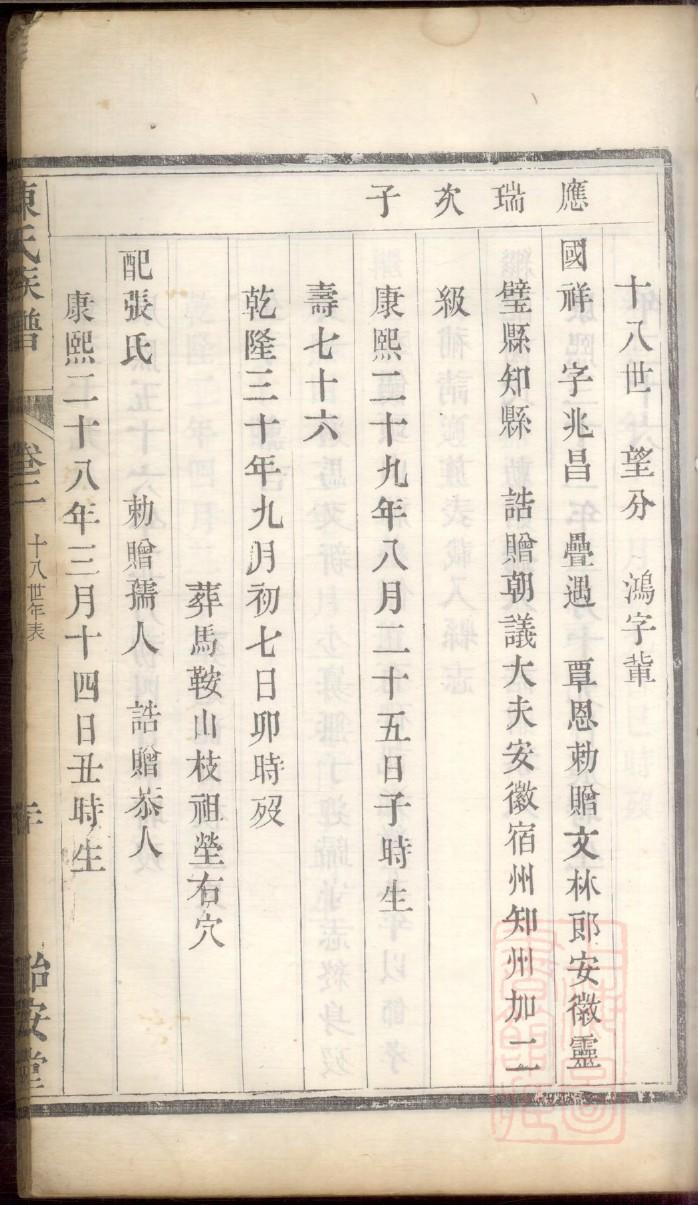 應瑞次子
十八世 望分 鴻字輩
國祥 字兆昌 疊遇 覃恩勅贈文林郎安徽靈
璧縣知縣 誥贈朝議大夫安徽宿州知州加二
級
康熙二十九年八月二十五日子時生
壽七十六
乾隆三十年九月初七日卯時歿
葬馬鞍山枝祖塋右穴
配張氏 勅贈孺人 誥贈恭人
康熙二十八年三月十四日丑時生
陳氏族譜 卷二 十八世年表